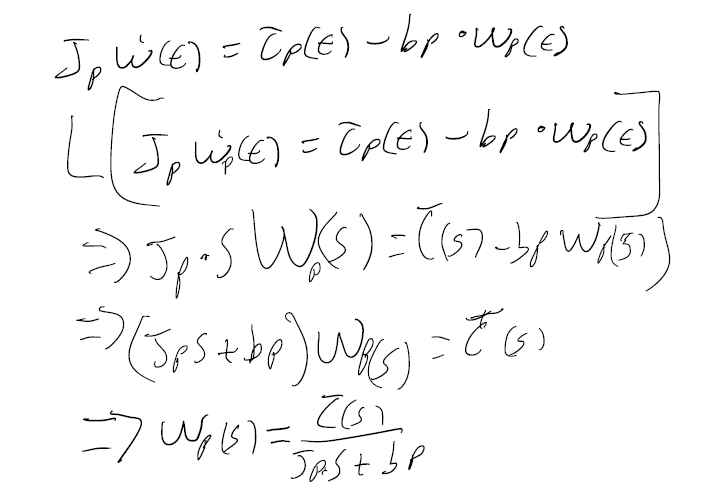 J_p ẇ(t) = τ_p(t) - b_p · w_p(t)
L[J_p ẇ_p(t) = τ_p(t) - b_p · w_p(t)]
=> J_p · s W_p(s) = τ(s) - b_p W_p(s)
=> (J_p s + b_p) W_p(s) = τ(s)
=> W_p(s) = τ(s) / (J_p · s + b_p)